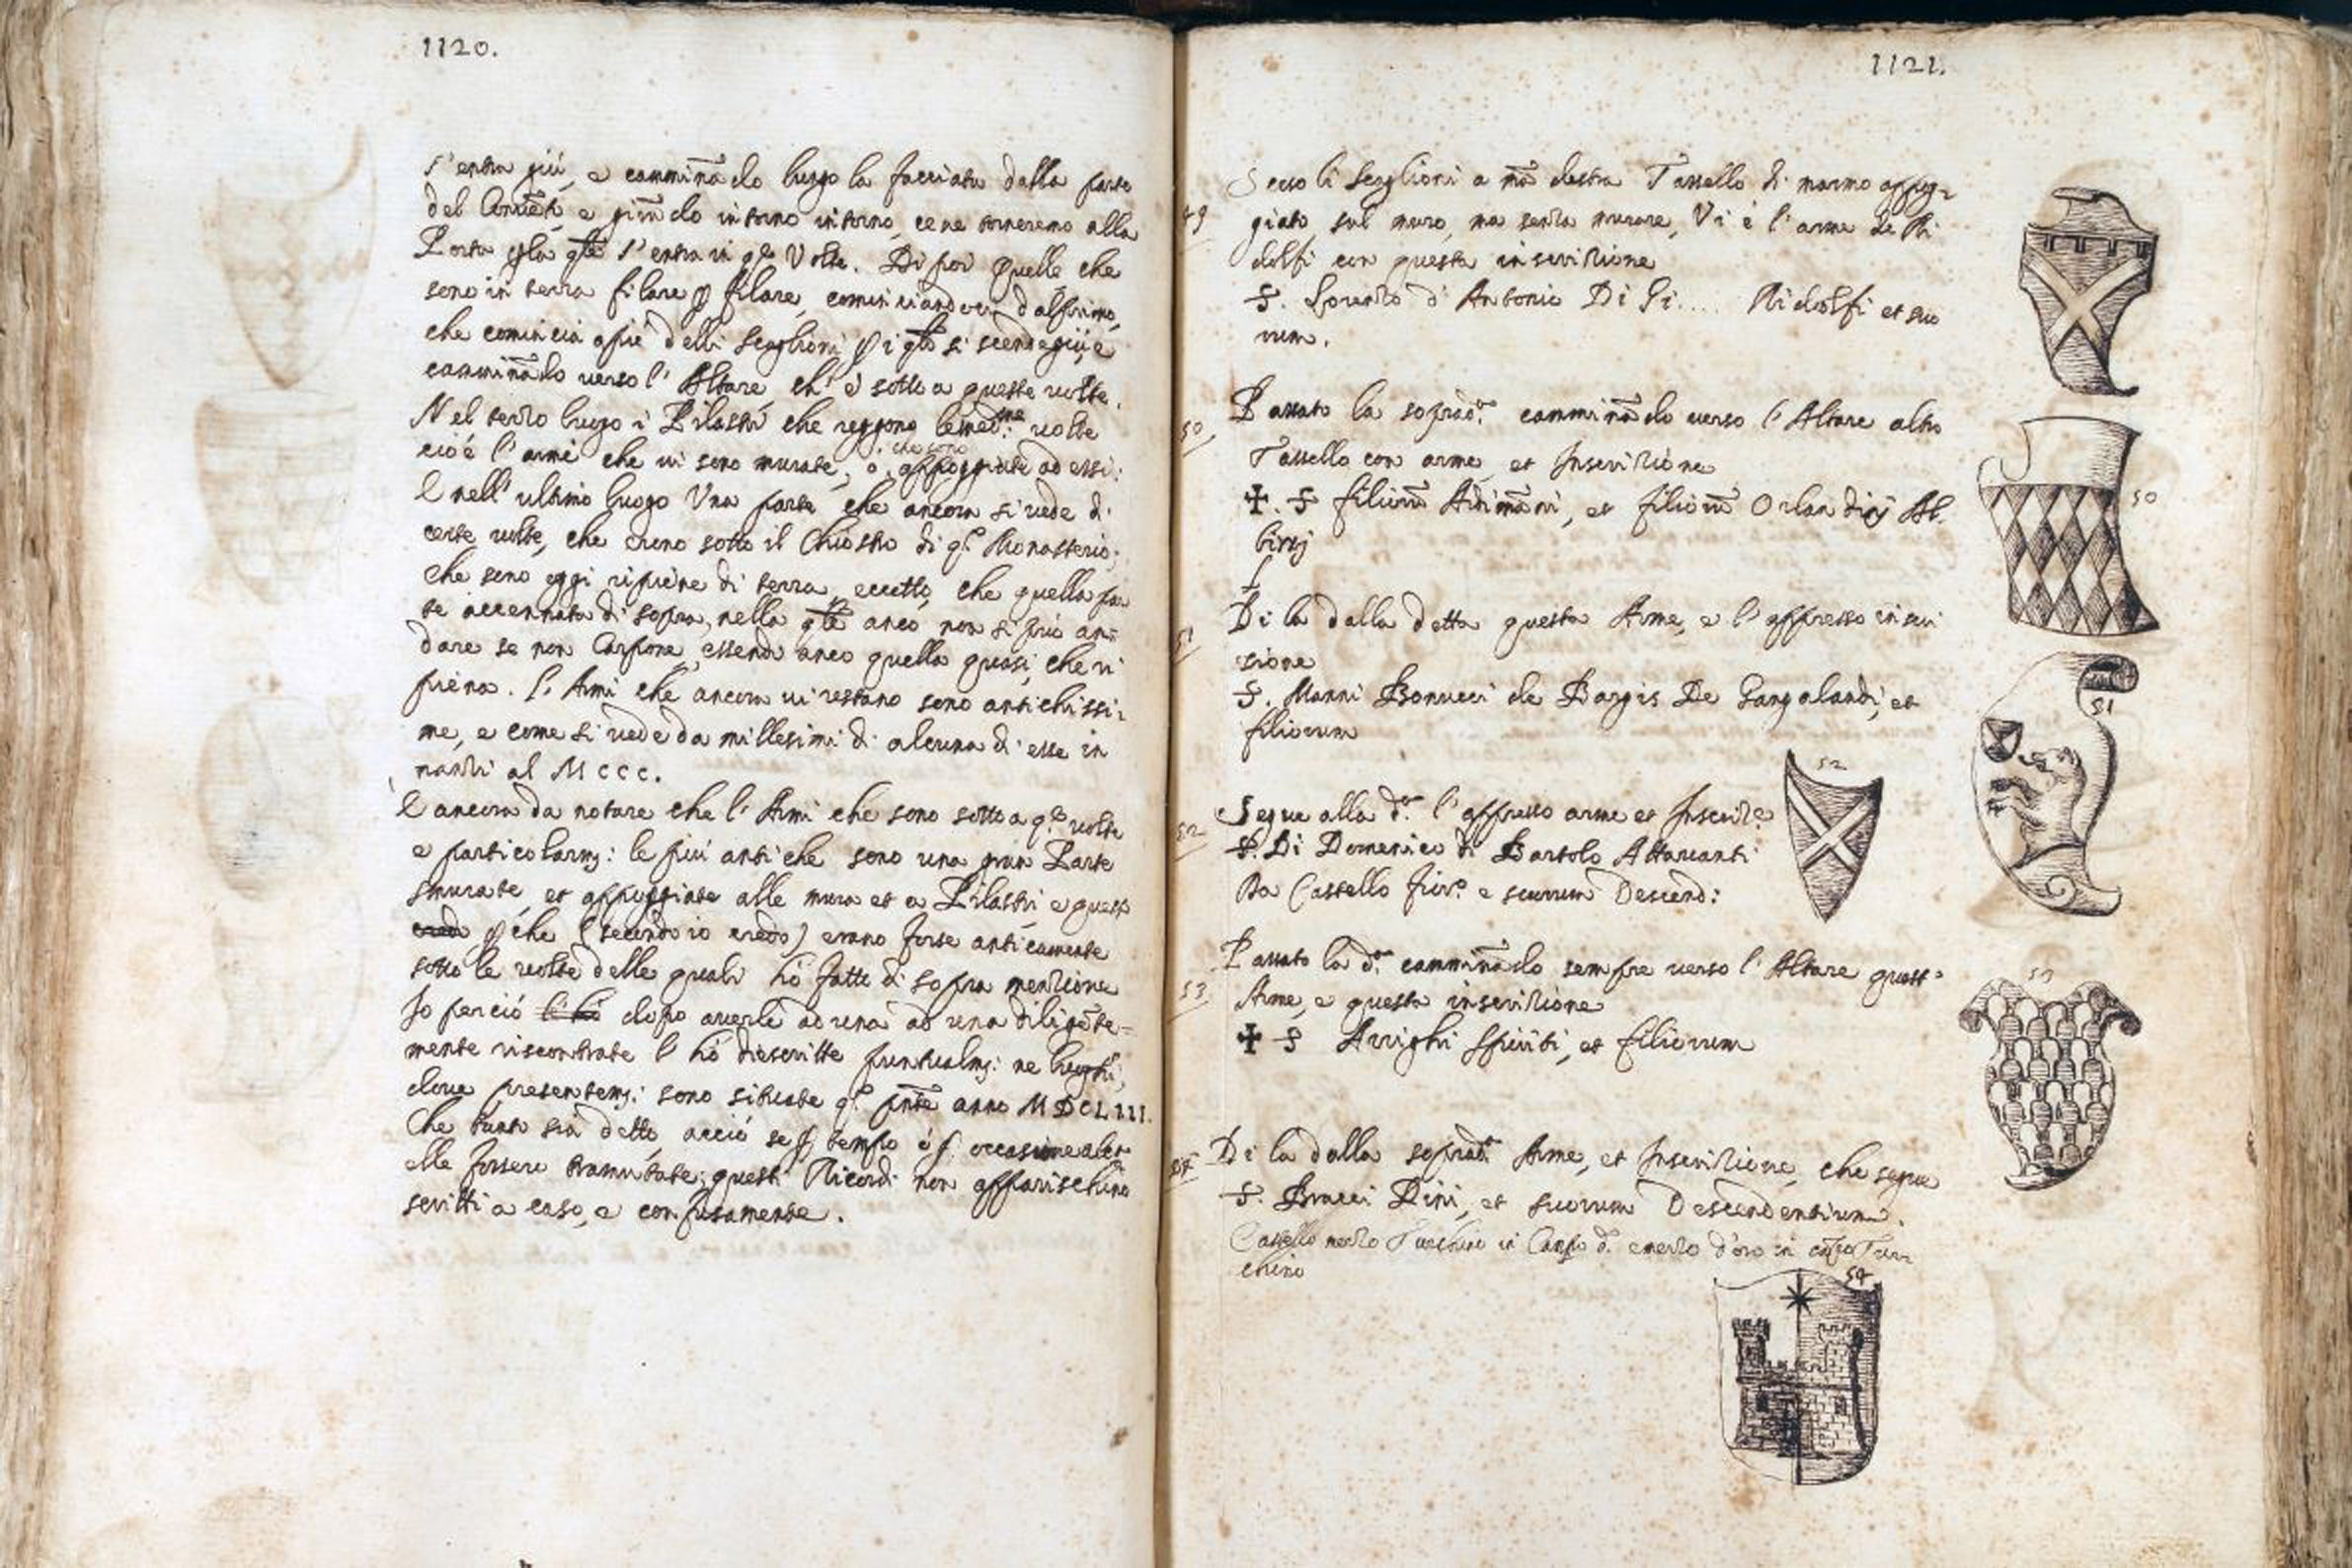 1120.
s'entra giù, e cammiñado lungo la facciata dalla parte
del e girãdo intorno intorno, ce ne torneremo alla
Porta s'entra in q.e Volte. Di poi quelle che
sono in terra filare filare, cominciandoci dal primo,
che comincia a piè delli scaglioni si scende giù, e
cammiñado verso l'Altare, ch'è sotto a queste volte.
Nel terzo luogo i Pilastri che reggono le med.me volte
cioè l'armi che vi sono murate, ò che sono appoggiate ad essi:
E nell'ultimo luogo Una parte che ancora si vede di
certe volte, che erono sotto il Chiostro di q.o Monasterio,
che sono oggi ripiene di terra, eccetto, che quella par
te accennata di sopra, nella anco non si può an=
dare se non Carpone, essendo anco quella quasi, che ri
piena. l'Armi che ancora vi restano sono antichissi=
me, e come si vede da millesimi di alcuna di esse in
nanzi al MCCC.
E ancora da notare che l'Armi che sono sotto a q.e volte
e particolarm: le più antiche sono una gran Parte
smurate, et appoggiate alle mura et a Pilastri e questo
che (secondo io credo) erano forse anticamente
sotto le volte delle quali hò fatto di sopra menzione
Io perciò dopo averle ad una ad una diligẽte=
mente riscontrate l'hò descritte puntualm: ne luoghi,
dove presentem: sono situate q.o anno MDCLIII.
Che tanto sia detto, acciò se tempo ò occasione
elle fossero tramutate; questi Ricordi non apparischino
scritti a caso, e confusamente.
1121.
49
Sceso li Scaglioni a mã destra Tassello di marmo appog=
giato sul muro, ma senza murare, Vi è l'arme de Ri
dolfi con questa inscrizione
S. Lorenzo d'Antonio Di Gi.... Ridolfi et suo
rum.
50
Passato la soprad.a cammiñado verso l'Altare altro
Tassello con arme, et Inscrizione
✠. S filiorũ Adimãri, et filiorũ Orlandinj Al.
birrj
50
51
Di la dalla detta questa Arme, e l'appresso inscri
zione
S. Manni Bonucci de Bargis De Gangalandi, et
filiorum
51
52
Segue alla d.a l'appresso arme et Inscriz.e
S. Di Domenico di Bartolo Attavanti
Da Castello fior.o e suorum Descend:
52
53
Passato la d.a cammiñado sempre verso l'Altare quest'
Arme, e questa inscrizione
✠ S Arrighi Spiriti, et filiorum
53
54
Di la dalla soprad.a Arme, et Inscrizione, che segue
S. Bracci Dini, et suorum Descendentium.
Castello mezzo Turchino in Campo d. e mezzo d'oro in cãpo Tur=
chino
54